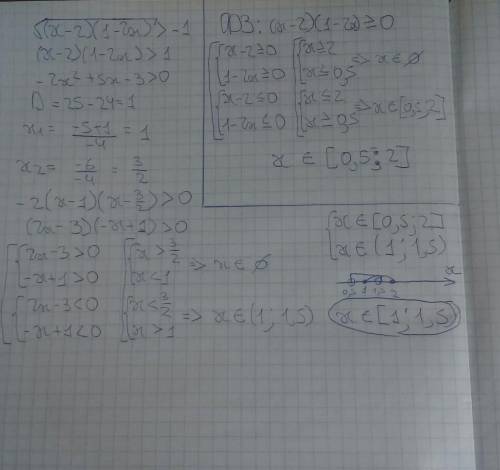 √(x-2)(1-2x) > -1
(x-2)(1-2x) > 1
-2x² + 5x - 3 > 0
D = 25 - 24 = 1
x₁ = -5+1/-4 = 1
x₂ = -6/-4 = 3/2
-2(x-1)(x-3/2) > 0
(2x-3)(-x+1) > 0
[ { 2x-3 > 0 { x > 3/2
-x+1 > 0 x < 1 => x ∈ ∅
{ 2x-3 < 0 { x < 3/2
-x+1 < 0 x > 1 => x ∈ (1; 1,5)
ОДЗ: (x-2)(1-2x) ≥ 0
[ { x-2 ≥ 0 { x ≥ 2
1-2x ≥ 0 x ≤ 0,5 => x ∈ ∅
{ x-2 ≤ 0 { x ≤ 2
1-2x ≤ 0 x ≥ 0,5 => x ∈ [0,5; 2]
x ∈ [0,5; 2]
{ x ∈ [0,5; 2]
x ∈ (1; 1,5)
x
0,5 1 1,5 2
x ∈ [1; 1,5)